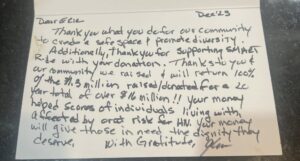 Dear Eric Dec '23
Thank you what you do for our community
to create a safe space & promote diversity
Additionally, thank you for supporting
Ride with your donation. Thanks to you &
our community we raised & will return 100%
of the raised/donated for a
year total of over $16 million!! Your money
helped scores of individuals living with,
affected by or at risk for HIV. Your money
will give those in need the dignity they
deserve,
With Gratitude,